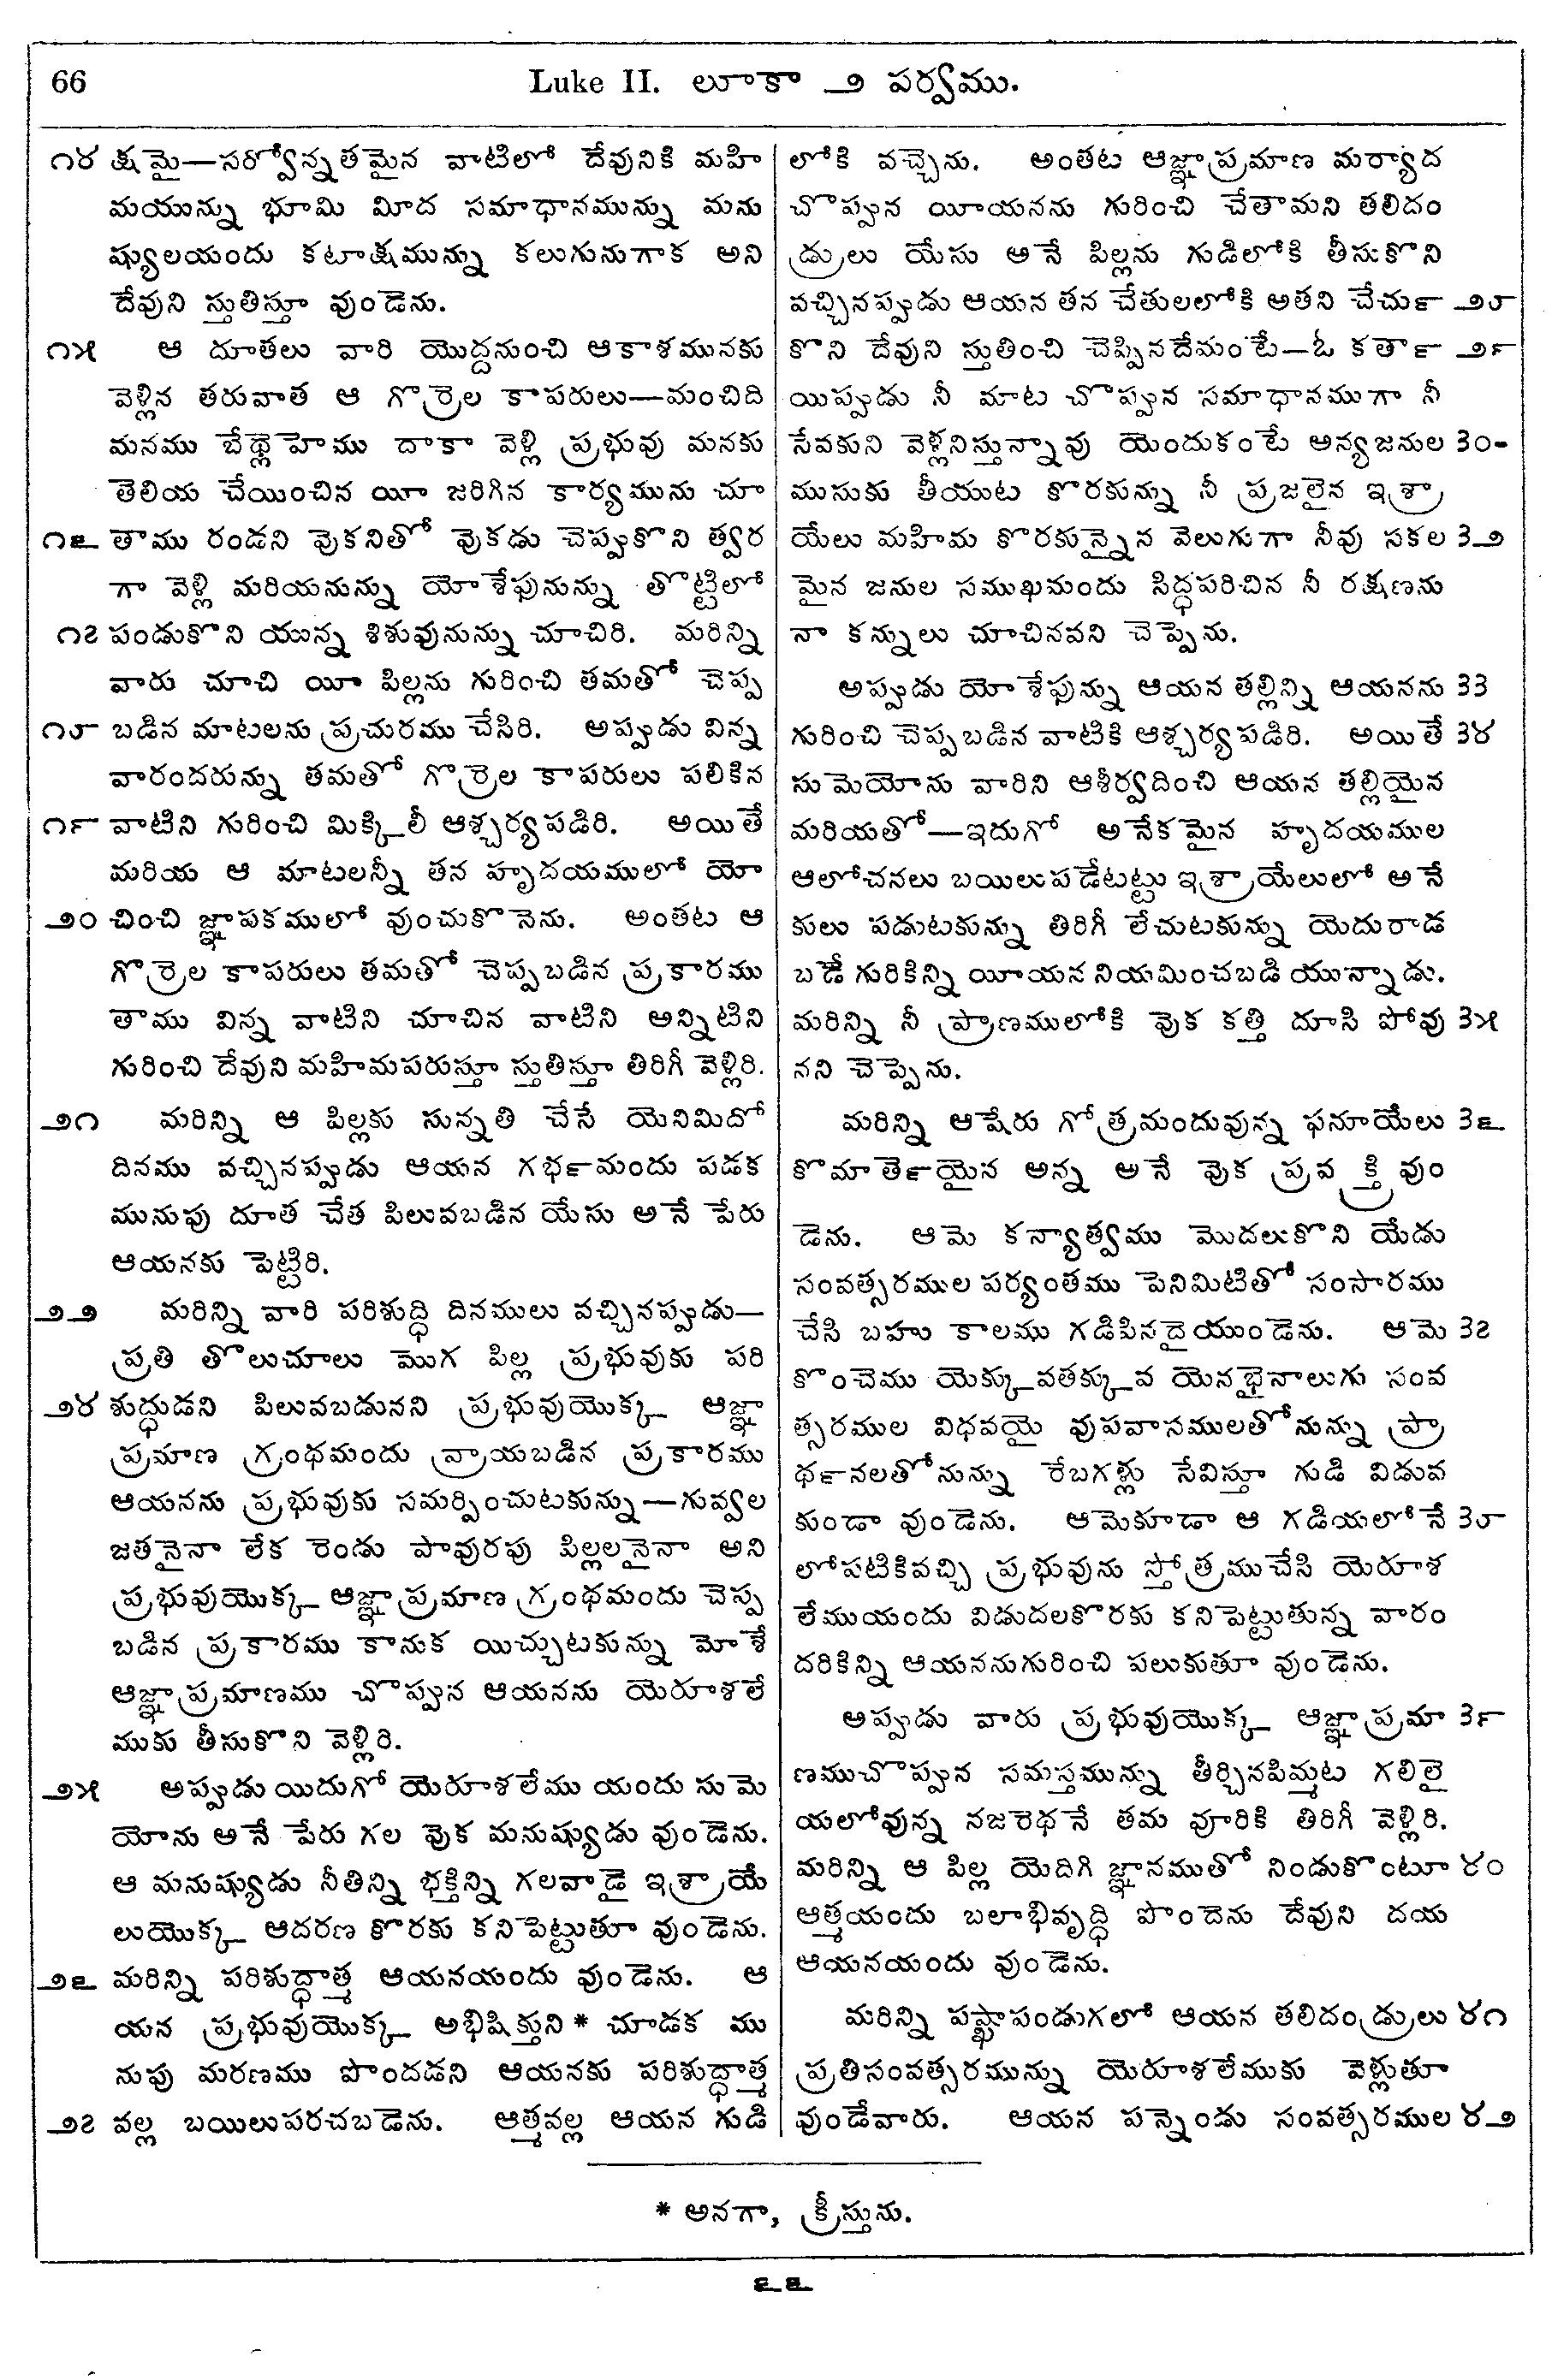 66
Luke II. లూకా ౨ పర్వము.
౧౪ క్షమై—సర్వోన్నతమైన వాటిలో దేవునికి మహి
మయున్ను భూమి మీద సమాధానమున్ను మను
ష్యులయందు కటాక్షమున్ను కలుగునుగాక అని
దేవుని స్తుతిస్తూ వుండెను.
౧౫ ఆ దూతలు వారి యొద్దనుంచి ఆకాళమునకు
వెళ్లిన తరువాత ఆ గొర్రెల కాపరులు—మంచిది
మనము బేథ్లెహెము దాకా వెళ్లి ప్రభువు మనకు
తెలియ చేయించిన యీ జరిగిన కార్యమును చూ
౧౬ తాము రండని వుెకనితో వుెకడు చెప్పుకొని త్వర
గా వెళ్లి మరియనున్ను యోశేఫునున్ను తొట్టిలో
౧౭ పండుకొని యున్న శిశువునున్ను చూచిరి. మరిన్ని
వారు చూచి యీ పిల్లను గురించి తమతో చెప్ప
౧౮ బడిన మాటలను ప్రచురము చేసిరి. అప్పుడు విన్న
వారందరున్ను తమతో గొర్రెల కాపరులు పలికిన
౧౯ వాటిని గురించి మిక్కిలీ ఆశ్చర్యపడిరి. అయితే
మరియ ఆ మాటలన్నీ తన హృదయములో యో
౨౦ చించి జ్ఞాపకములో వుంచుకొనెను. అంతట ఆ
గొర్రెల కాపరులు తమతో చెప్పబడిన ప్రకారము
తాము విన్న వాటిని చూచిన వాటిని అన్నిటిని
గురించి దేవుని మహిమపరుస్తూ స్తుతిస్తూ తిరిగీ వెళ్లిరి.
౨౧ మరిన్ని ఆ పిల్లకు సున్నతి చేసే యెనిమిదో
దినము వచ్చినప్పుడు ఆయన గభ౯మందు పడక
మునుపు దూత చేత పిలువబడిన యేసు అనే పేరు
ఆయనకు పెట్టిరి.
౨౨ మరిన్ని వారి పరిశుద్ధి దినములు వచ్చినప్పుడు—
ప్రతి తొలుచూలు మొగ పిల్ల ప్రభువుకు పరి
౨౪ శుద్ధుడని పిలువబడునని ప్రభువుయొక్క ఆజ్ఞా
ప్రమాణ గ్రంథమందు వ్రాయబడిన ప్రకారము
ఆయనను ప్రభువుకు సమర్పించుటకున్ను—గువ్వల
జతనైనా లేక రెండు పావురపు పిల్లలనైనా అని
ప్రభువుయొక్క ఆజ్ఞాప్రమాణ గ్రంథమందు చెప్ప
బడిన ప్రకారము కానుక యిచ్చుటకున్ను మోశే
ఆజ్ఞాప్రమాణము చొప్పున ఆయనను యెరూశలే
ముకు తీసుకొని వెళ్లిరి.
౨౫ అప్పుడు యిదుగో యెరూశలేము యందు సుమె
యోను అనే పేరు గల వుెక మనుష్యుడు వుండెను.
ఆ మనుష్యుడు నీతిన్ని భక్తిన్ని గలవాడై ఇశ్రాయే
లుయొక్క ఆదరణ కొరకు కనిపెట్టుతూ వుండెను.
౨౬ మరిన్ని పరిశుద్ధాత్మ ఆయనయందు వుండెను. ఆ
యన ప్రభువుయొక్క అభిషిక్తుని * చూడక ము
నుపు మరణము పొందడని ఆయనకు పరిశుద్ధాత్మ
౨౭ వల్ల బయిలుపరచబడెను. ఆత్మవల్ల ఆయన గుడి
లోకి వచ్చెను. అంతట ఆజ్ఞాప్రమాణ మర్యాద
చొప్పున యీయనను గురించి చేతామని తలిదం
డ్రులు యేసు అనే పిల్లను గుడిలోకి తీసుకొని
వచ్చినప్పుడు ఆయన తన చేతులలోకి అతని చేచు౯ ౨౮
కొని దేవుని స్తుతించి చెప్పినదేమంటే—ఓ కతా౯ ౨౯
యిప్పుడు నీ మాట చొప్పున సమాధానముగా నీ
సేవకుని వెళ్లనిస్తున్నావు యెందుకంటే అన్యజనుల ౩౦-
ముసుకు తీయుట కొరకున్ను నీ ప్రజలైన ఇశ్రా
యేలు మహిమ కొరకున్నైన వెలుగుగా నీవు సకల ౩౨
మైన జనుల సముఖమందు సిద్ధపరిచిన నీ రక్షణను
నా కన్నులు చూచినవని చెప్పెను.
అప్పుడు యోశేఫున్ను ఆయన తల్లిన్ని ఆయనను ౩౩
గురించి చెప్పబడిన వాటికి ఆశ్చర్యపడిరి. అయితే ౩౪
సుమెయోను వారిని ఆశీర్వదించి ఆయన తల్లియైన
మరియతో—ఇదుగో అనేకమైన హృదయముల
ఆలోచనలు బయిలుపడేటట్టు ఇశ్రాయేలులో అనే
కులు పడుటకున్ను తిరిగీ లేచుటకున్ను యెదురాడ
బడే గురికిన్ని యీయన నియమించబడి యున్నాడు.
మరిన్ని నీ ప్రాణములోకి వుెక కత్తి దూసి పోవు ౩౫
నని చెప్పెను.
మరిన్ని ఆషేరు గోత్రమందువున్న ఫనూయేలు ౩౬
కొమాతె౯యైన అన్న అనే వుెక ప్రవక్త్రి వుం
డెను. ఆమె కన్యాత్వము మొదలుకొని యేడు
సంవత్సరముల పర్యంతము పెనిమిటితో సంసారము
చేసి బహు కాలము గడిపినదైయుండెను. ఆమె ౩౭
కొంచెము యెక్కువతక్కువ యెనభైనాలుగు సంవ
త్సరముల విధవయై వుపవాసములతోనున్ను ప్రా
థ౯నలతోనున్ను రేబగళ్లు సేవిస్తూ గుడి విడువ
కుండా వుండెను. ఆమెకూడా ఆ గడియలోనే ౩౮
లోపటికివచ్చి ప్రభువును స్తోత్రముచేసి యెరూశ
లేముయందు విడుదలకొరకు కనిపెట్టుతున్న వారం
దరికిన్ని ఆయననుగురించి పలుకుతూ వుండెను.
అప్పుడు వారు ప్రభువుయొక్క ఆజ్ఞాప్రమా ౩౯
ణముచొప్పున సమస్తమున్ను తీర్చినపిమ్మట గలిలై
యలోవున్న నజరెథనే తమ వూరికి తిరిగీ వెళ్లిరి.
మరిన్ని ఆ పిల్ల యెదిగి జ్ఞానముతో నిండుకొంటూ ౪౦
ఆత్మయందు బలాభివృద్ధి పొందెను దేవుని దయ
ఆయనయందు వుండెను.
మరిన్ని పష్ఖాపండుగలో ఆయన తలిదండ్రులు ౪౧
ప్రతిసంవత్సరమున్ను యెరూశలేముకు వెళ్లుతూ
వుండేవారు. ఆయన పన్నెండు సంవత్సరముల ౪౨
* అనగా, క్రీస్తును.
౬౬